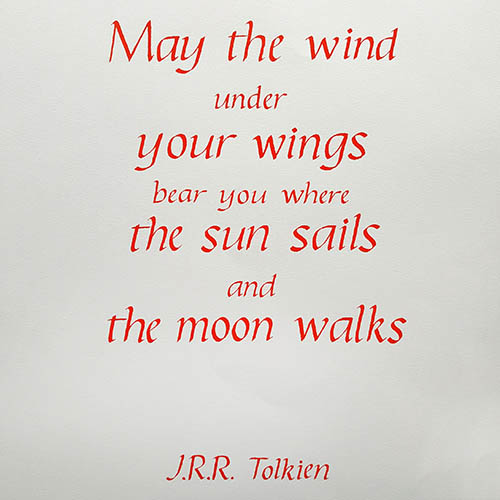 May the wind
under
your wings
bear you where
the sun sails
and
the moon walks
J.R.R. Tolkien